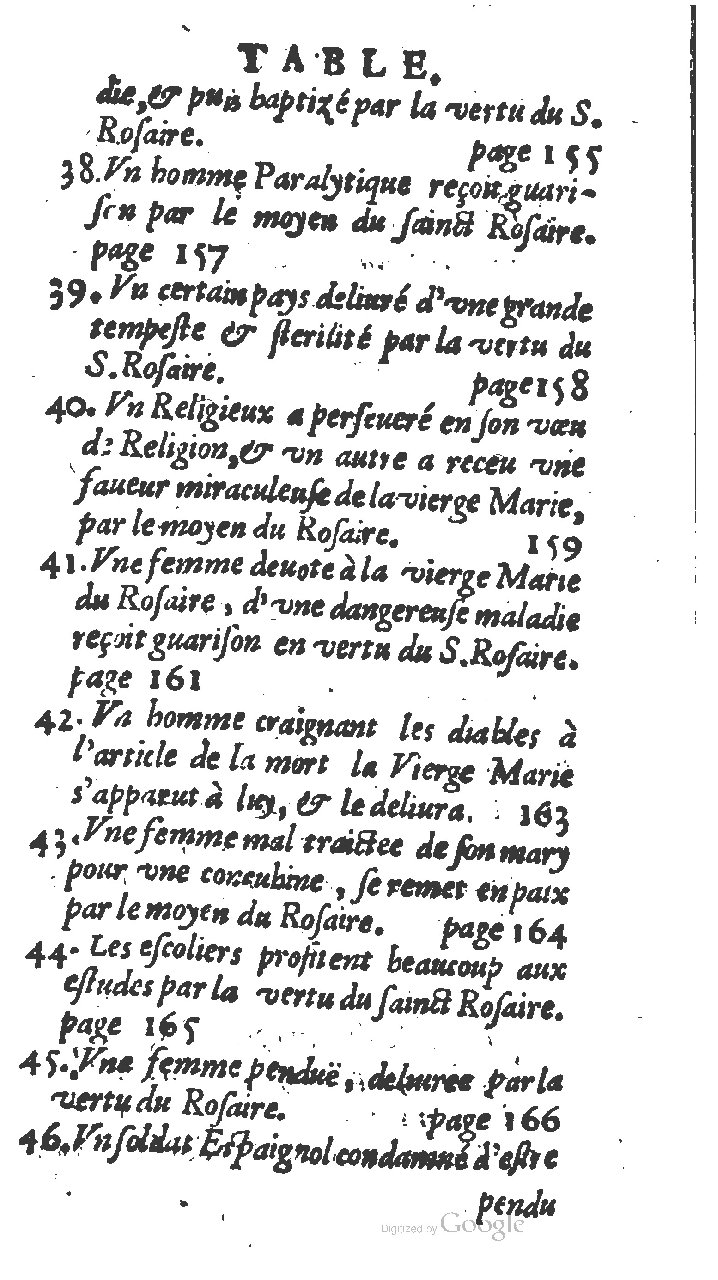 TABLE.
die, & puis baptizé par la vertu du S.
Rosaire. page 155
38. Vn homme Paralytique reçoit guari-
son par le moyen du sainct Rosaire.
page 157
39. Vn certain pays deliuré d'vne grande
tempeste & sterilité par la vertu du
S. Rosaire. page 158
40. Vn Religieux a perseueré en son vœu
de Religion, & vn autre a receu vne
faueur miraculeuse de la vierge Marie,
par le moyen du Rosaire. 159
41. Vne femme deuote à la vierge Marie
du Rosaire, d'vne dangereuse maladie
reçoit guarison en vertu du S. Rosaire.
page 161
42. Vn homme craignant les diables à
l'article de la mort la Vierge Marie
s'apparut à luy, & le deliura. 163
43. Vne femme mal traictee de son mary
pour vne concubine, se remet en paix
par le moyen du Rosaire. page 164
44. Les escoliers profitent beaucoup aux
estudes par la vertu du sainct Rosaire.
page 165
45. Vne femme penduë, deliuree par la
vertu du Rosaire. page 166
46. Vn soldat Espaignol condamné d'estre
pendu
Digitized by Google